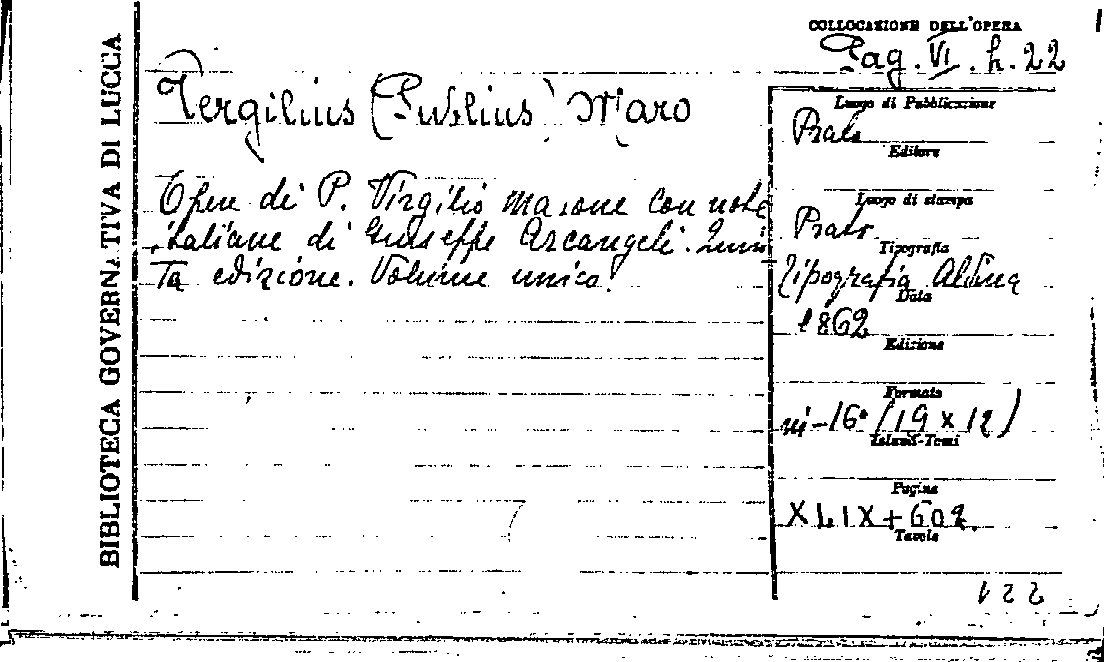 BIBLIOTECA GOVERNATIVA DI LUCCA
COLLOCAZIONE DELL'OPERA
Pag. VI. h. 22
Vergilius (Publius) Maro
Opere di P. Virgilio Marone con note
italiane di Giuseppe Arcangeli. Quin
ta edizione. Volume unico.
Luogo di Pubblicazione
Prato
Editore
Luogo di stampa
Prato
Tipografia
Tipografia Aldina
Data
1862
Edizione
Formato
in-16° (19 x 12)
Pagine
XLIX+602.
Tavole
122